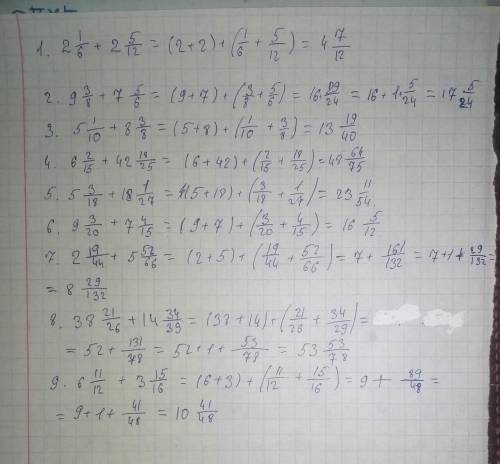 1. 2 1/6 + 2 5/12 = (2+2) + (1/6 + 5/12) = 4 7/12
2. 9 3/8 + 7 5/6 = (9+7) + (3/8 + 5/6) = 16 + 29/24 = 16 + 1 + 5/24 = 17 5/24
3. 5 1/10 + 8 3/8 = (5+8) + (1/10 + 3/8) = 13 19/40
4. 6 2/15 + 42 18/25 = (6+42) + (2/15 + 18/25) = 48 64/75
5. 5 3/18 + 18 1/27 = (5+18) + (3/18 + 1/27) = 23 11/54.
6. 9 3/20 + 7 4/15 = (9+7) + (3/20 + 4/15) = 16 5/12
7. 2 19/44 + 5 52/66 = (2+5) + (19/44 + 52/66) = 7 + 161/132 = 7+1+ 29/132 =
= 8 29/132
8. 38 21/26 + 14 34/39 = (38+14) + (21/26 + 34/29) =
= 52 + 131/78 = 52 + 1 + 53/78 = 53 53/78
9. 6 11/12 + 3 15/16 = (6+3) + (11/12 + 15/16) = 9 + 89/48 =
= 9+1+ 41/48 = 10 41/48